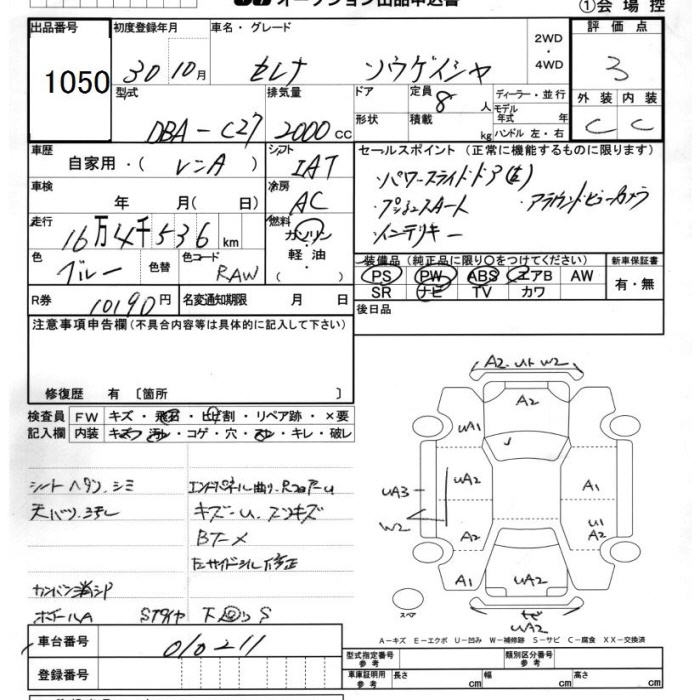 オークション出品申込書
①会場控
出品番号 初度登録年月 車名・グレード 2WD・4WD 評価点
1050 30 10月 セレナ ソウゲイシャ 3
型式 排気量 ドア 定員 8人 ディーラー・並行 外装 内装
DBA-C27 2000cc 形状 積載 kg モデル年式 年 ハンドル 左・右 C C
車歴 自家用・(レンA) シフト IAT セールスポイント (正常に機能するものに限ります)
車検 年 月(日) 冷房 AC ・パワースライドドア(左)
・プッシュスタート ・アラウンドビューカメラ
・インテリキー
走行 16万4千536km 燃料 ガソリン・軽油・( )
色 ブルー 色替 色コード RAW
装備品 (純正品に限り○をつけてください) 新車保証書
PS PW ABS エアB AW 有・無
SR ナビ TV カワ
R券 10190円 名変通知期限 月 日 後日品
注意事項申告欄 (不具合内容等は具体的に記入して下さい)
修復歴 有 〔箇所 〕
検査員 FW キズ・飛石・ヒビ割・リペア跡・×要
記入欄 内装 キズ・汚れ・コゲ・穴・スレ・キレ・破レ
シートヘタリ、シミ エンドパネル曲り、Rフロアーu
キズ-u、スリキズ
Bサーメ
カンバン消シP
ホイールA STタイヤ 下回りS
A2 u1 W2
A2
uA1
uA2 A1
uA3
W2
A2 u1 A2
A1 uA2
スペア uA2
A-キズ E-エクボ U-凹み W-補修跡 S-サビ C-腐食 XX-交換済
車台番号 010211
登録番号
型式指定番号 参考 類別区分番号 参考
車庫証明用 参考 長さ cm 幅 cm 高さ cm